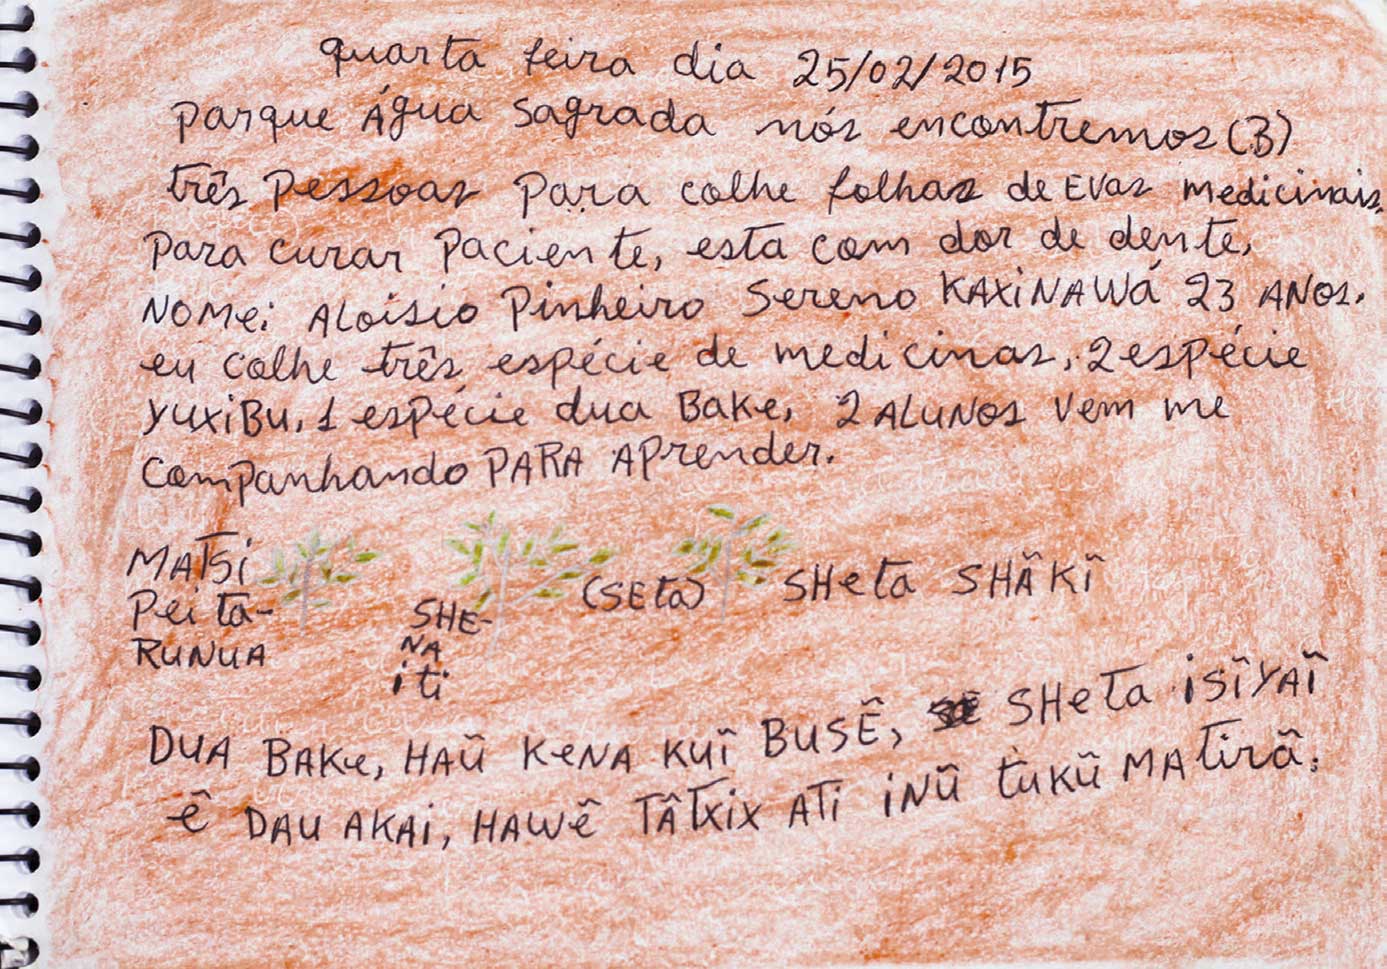 quarta feira dia 25/02/2015
Parque Água Sagrada nós encontremos (3)
três Pessoas Para colhe folhas de Evas medicinais.
Para curar Paciente, esta com dor de dente,
NOMe: ALoisio Pinheiro Sereno KAXiNAWá 23 ANos.
eu colhe três espécie de medicinas, 2 espécie
YUXiBU, 1 espécie dua Bake, 2 ALUNOS vem me
companhando PARA APrender.
MATSi
Pei ta-
RUNUA
SHE-
NA
iti
(SEta)
SHeta SHÃKĨ
DUA BAKe, HAŨ KeNA KUĨ BUSẼ, SHeTa iSĨYAĨ
ẽ DAU AKAi, HAWẽ TÃTXiX ATi iNŨ tuKŨ MATirã.